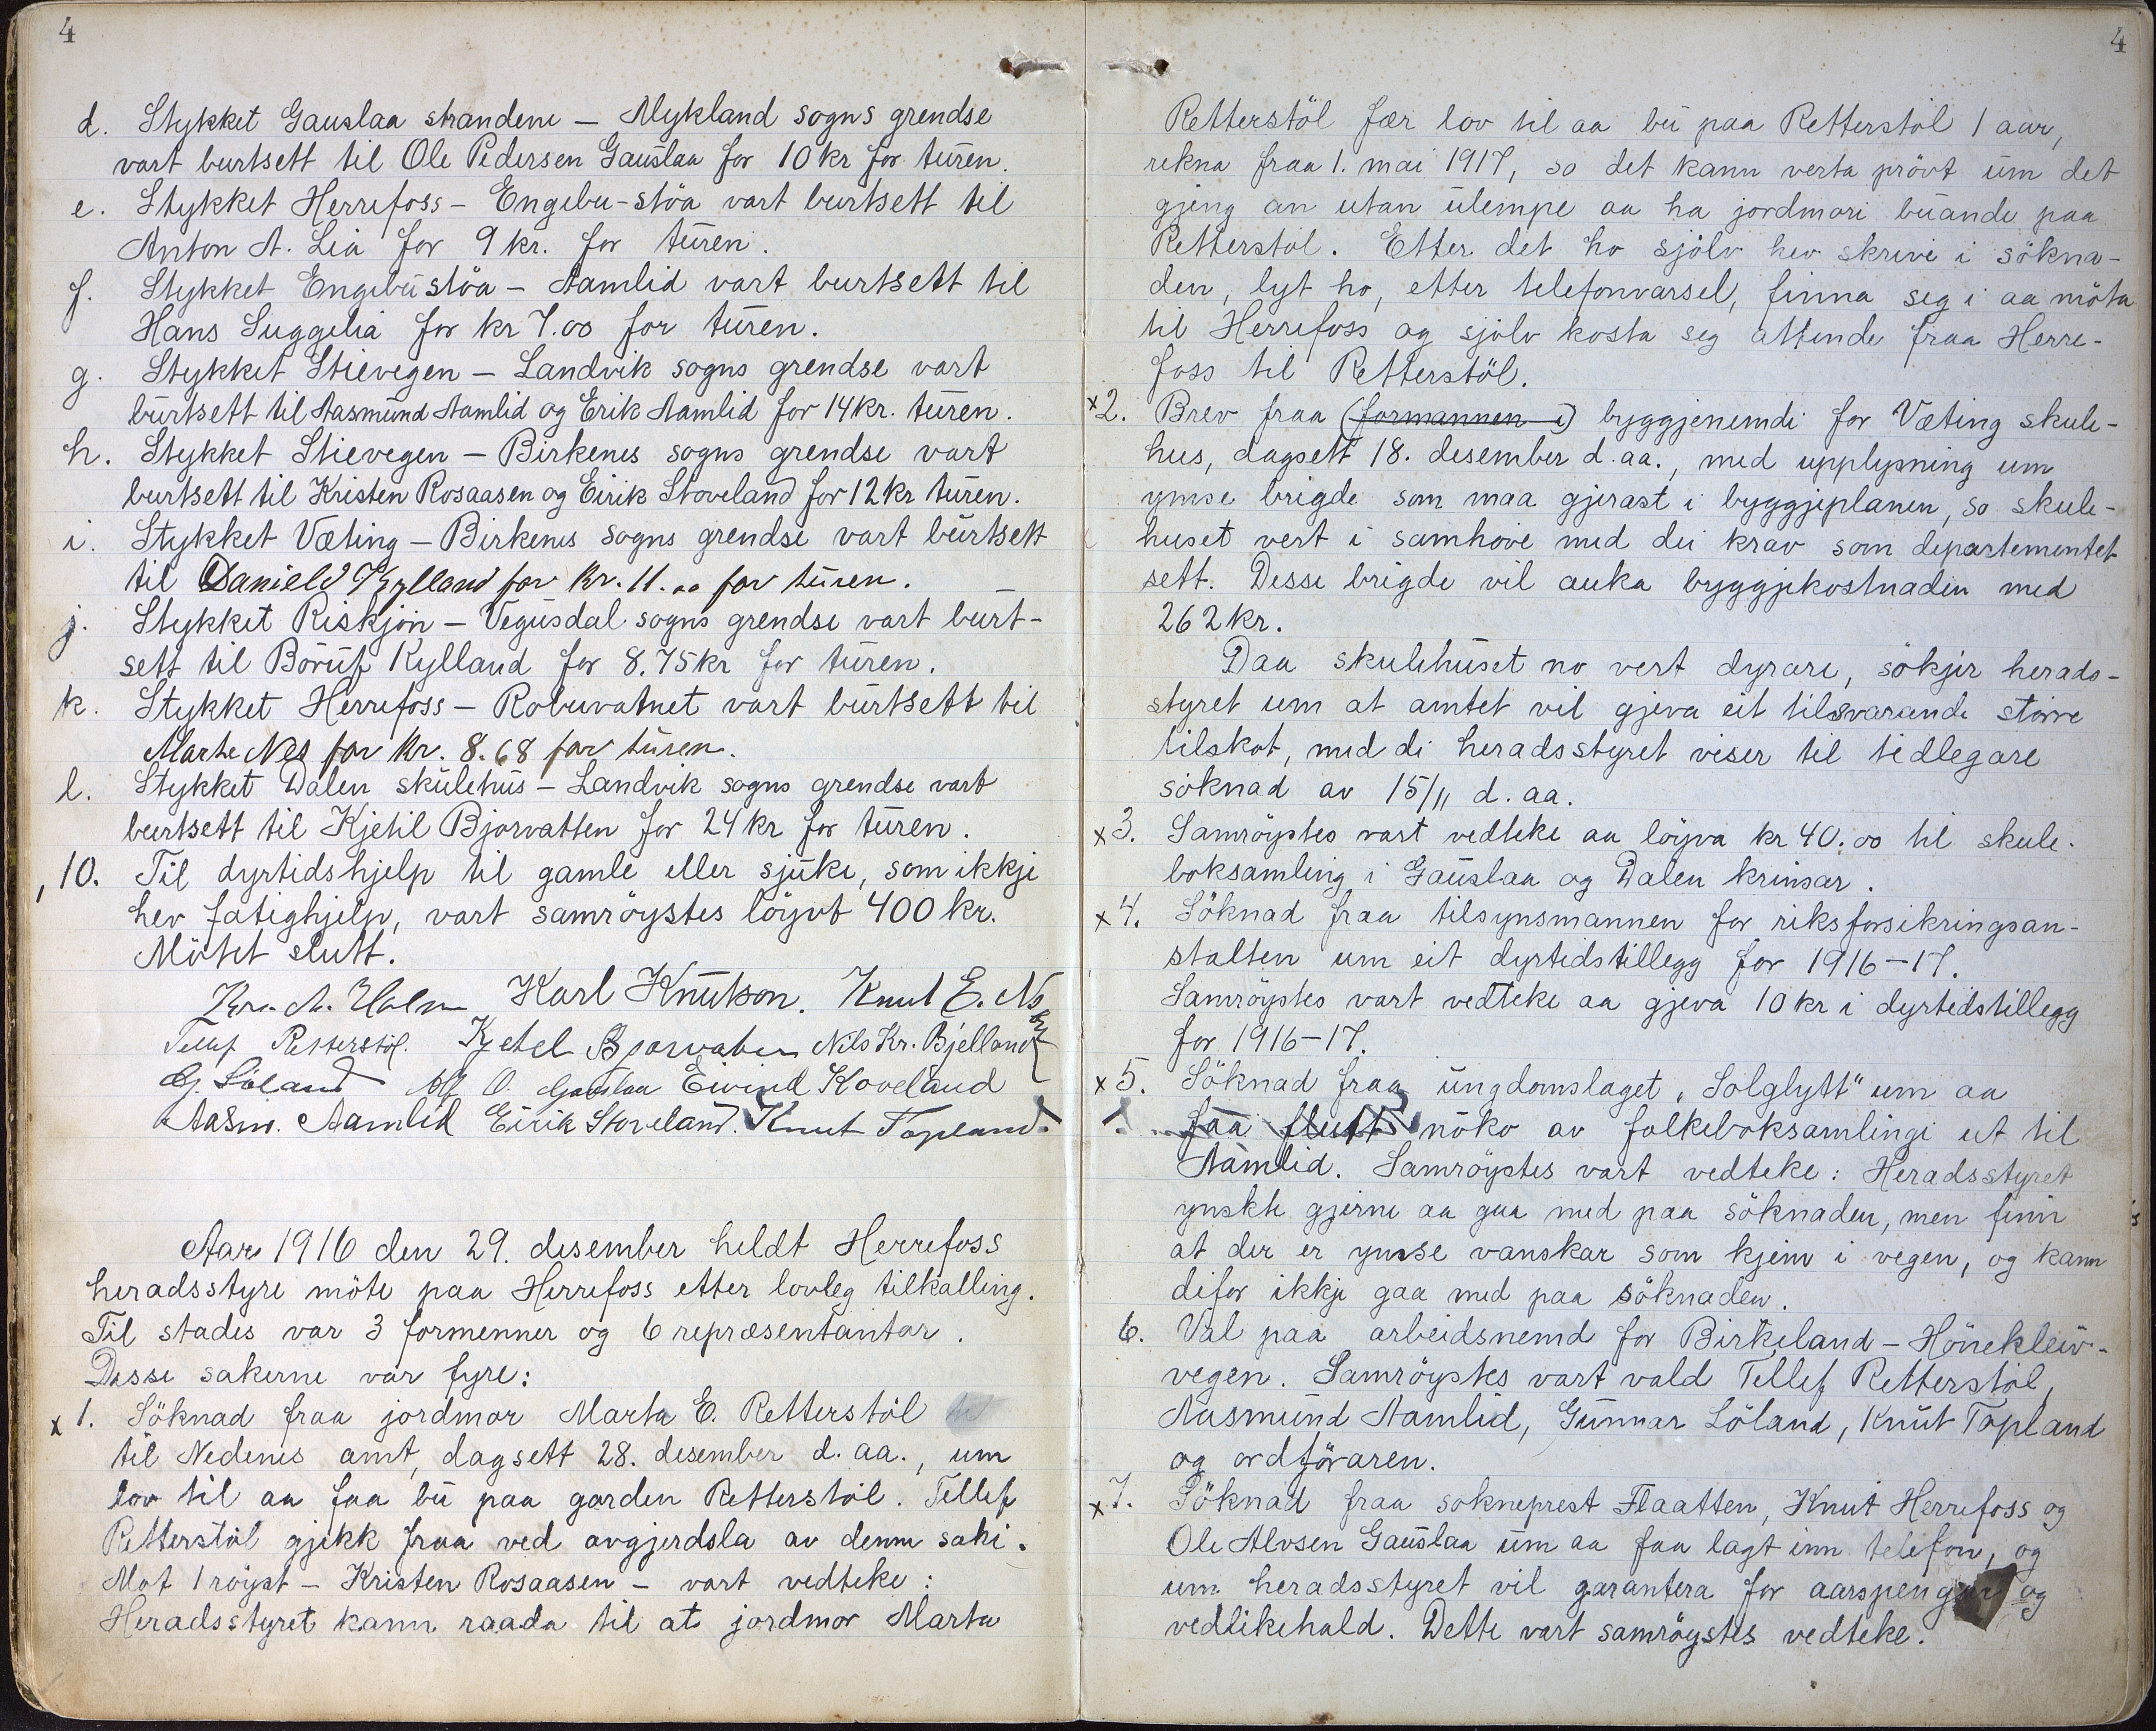 4
d. Stykket Gauslaa strandene – Mykland sogns grendse
vart burtsett til Ole Pedersen Gauslaa for 10 kr for turen.
e. Stykket Herrefoss – Engebu-stöa vart burtsett til
Anton A. Lia for 9 kr. for turen.
f. Stykket Engebustöa – Aamlid vart burtsett til
Hans Suggelia for kr 7.00 for turen.
g. Stykket Stievegen – Landvik sogns grendse vart
burtsett til Aasmund Aamlid og Erik Aamlid for 14 kr. turen.
h. Stykket Stievegen – Birkenes sogns grendse vart
burtsett til Kristen Rosaasen og Eirik Stoveland for 12 kr turen.
i. Stykket Væting – Birkenes sogns grendse vart burtsett
til Daniel Kylland for kr. 11.00 for turen.
j. Stykket Riskjön – Vegusdal sogns grendse vart burt-
sett til Börüf Kylland for 8.75 kr for turen.
k. Stykket Herrefoss – Robuvatnet vart burtsett til
Marte Nes for kr. 8.68 for turen.
l. Stykket Dalen skulehus – Landvik sogns grendse vart
burtsett til Kjetil Bjorvatten for 24 kr for turen.
10. Til dyrtidshjelp til gamle eller sjuke, som ikkje
hev fatighjelp, vart samröystes löyvt 400 kr.
Mötet slutt.
Karl Knutson. Knut E.
Tellef Retterstöl. Kjetel Bjorvaten Nils Kr. Bjelland
G. Löland O. Gauslaa Eivind Koveland
Aasm. Aamlid Eirik Stoveland. Knut Topland.
Aar 1916 den 29. desember heldt Herrefoss
heradsstyre möte paa Herrefoss etter lovleg tilkalling.
Til stades var 3 formenner og 6 repræsentantar.
Desse sakerne var fyre:
x 1. Söknad fraa jordmor Marta E. Retterstöl
til Nedenes amt, dagsett 28. desember d. aa., um
lov til aa faa bu paa garden Retterstöl. Tellef
Retterstöl gjekk fraa ved avgjerdsla av denne saki.
Mot 1 röyst – Kristen Rosaasen – vart vedteke:
Heradsstyret kann raada til at jordmor Marta
4
Retterstöl fær lov til aa bu paa Retterstöl 1 aar,
rekna fraa 1. mai 1917, so det kann verta prövt um det
gjeng an utan ulempe aa ha jordmori buande paa
Retterstöl. Etter det ho sjölv hev skrive i sökna-
den, lyt ho, etter telefonvarsel, finna seg i aa möta
til Herrefoss og sjölv kosta seg attende fraa Herre-
foss til Retterstöl.
x 2. Brev fraa (formannen i) byggjenemdi for Væting skule-
hus, dagsett 18. desember d. aa., med upplysning um
ymse brigde som maa gjerast i byggjeplanen, so skule-
huset vert i samhöve med dei krav som departementet
sett. Desse brigde vil auka byggjekostnaden med
262 kr.
Daa skulehuset no vert dyrare, sökjer herads-
styret um at amtet vil gjeva eit tilsvarande större
tilskot, med di heradsstyret viser til tidlegare
söknad av 15/11 d. aa.
x 3. Samröystes vart vedteke aa löyva kr 40.00 til skule-
boksamling i Gauslaa og Dalen krinsar.
x 4. Söknad fraa tilsynsmannen for riksforsikringsan-
stalten um eit dyrtidstillegg for 1916–17.
Samröystes vart vedteke aa gjeva 10 kr i dyrtidstillegg
for 1916–17.
x 5. Söknad fraa ungdomslaget „Solglytt" um aa
faa flutt noko av folkeboksamlingi ut til
Aamlid. Samröystes vart vedteke: Heradsstyret
ynskte gjerne aa gaa med paa söknaden, men finn
at der er ymse vanskar som kjem i vegen, og kann
difor ikkje gaa med paa söknaden.
6. Val paa arbeidsnemd for Birkeland – Höneklëiv-
vegen. Samröystes vart vald Tellef Retterstöl,
Aasmund Aamlid, Gunnar Löland, Knut Topland
og ordföraren.
x 7. Söknad fraa sokneprest Flaatten, Knut Herrefoss og
Ole Alvsen Gauslaa um aa faa lagt inn telefon, og
um heradsstyret vil garantera for aarspengar og
vedlikehald. Dette vart samröystes vedteke.